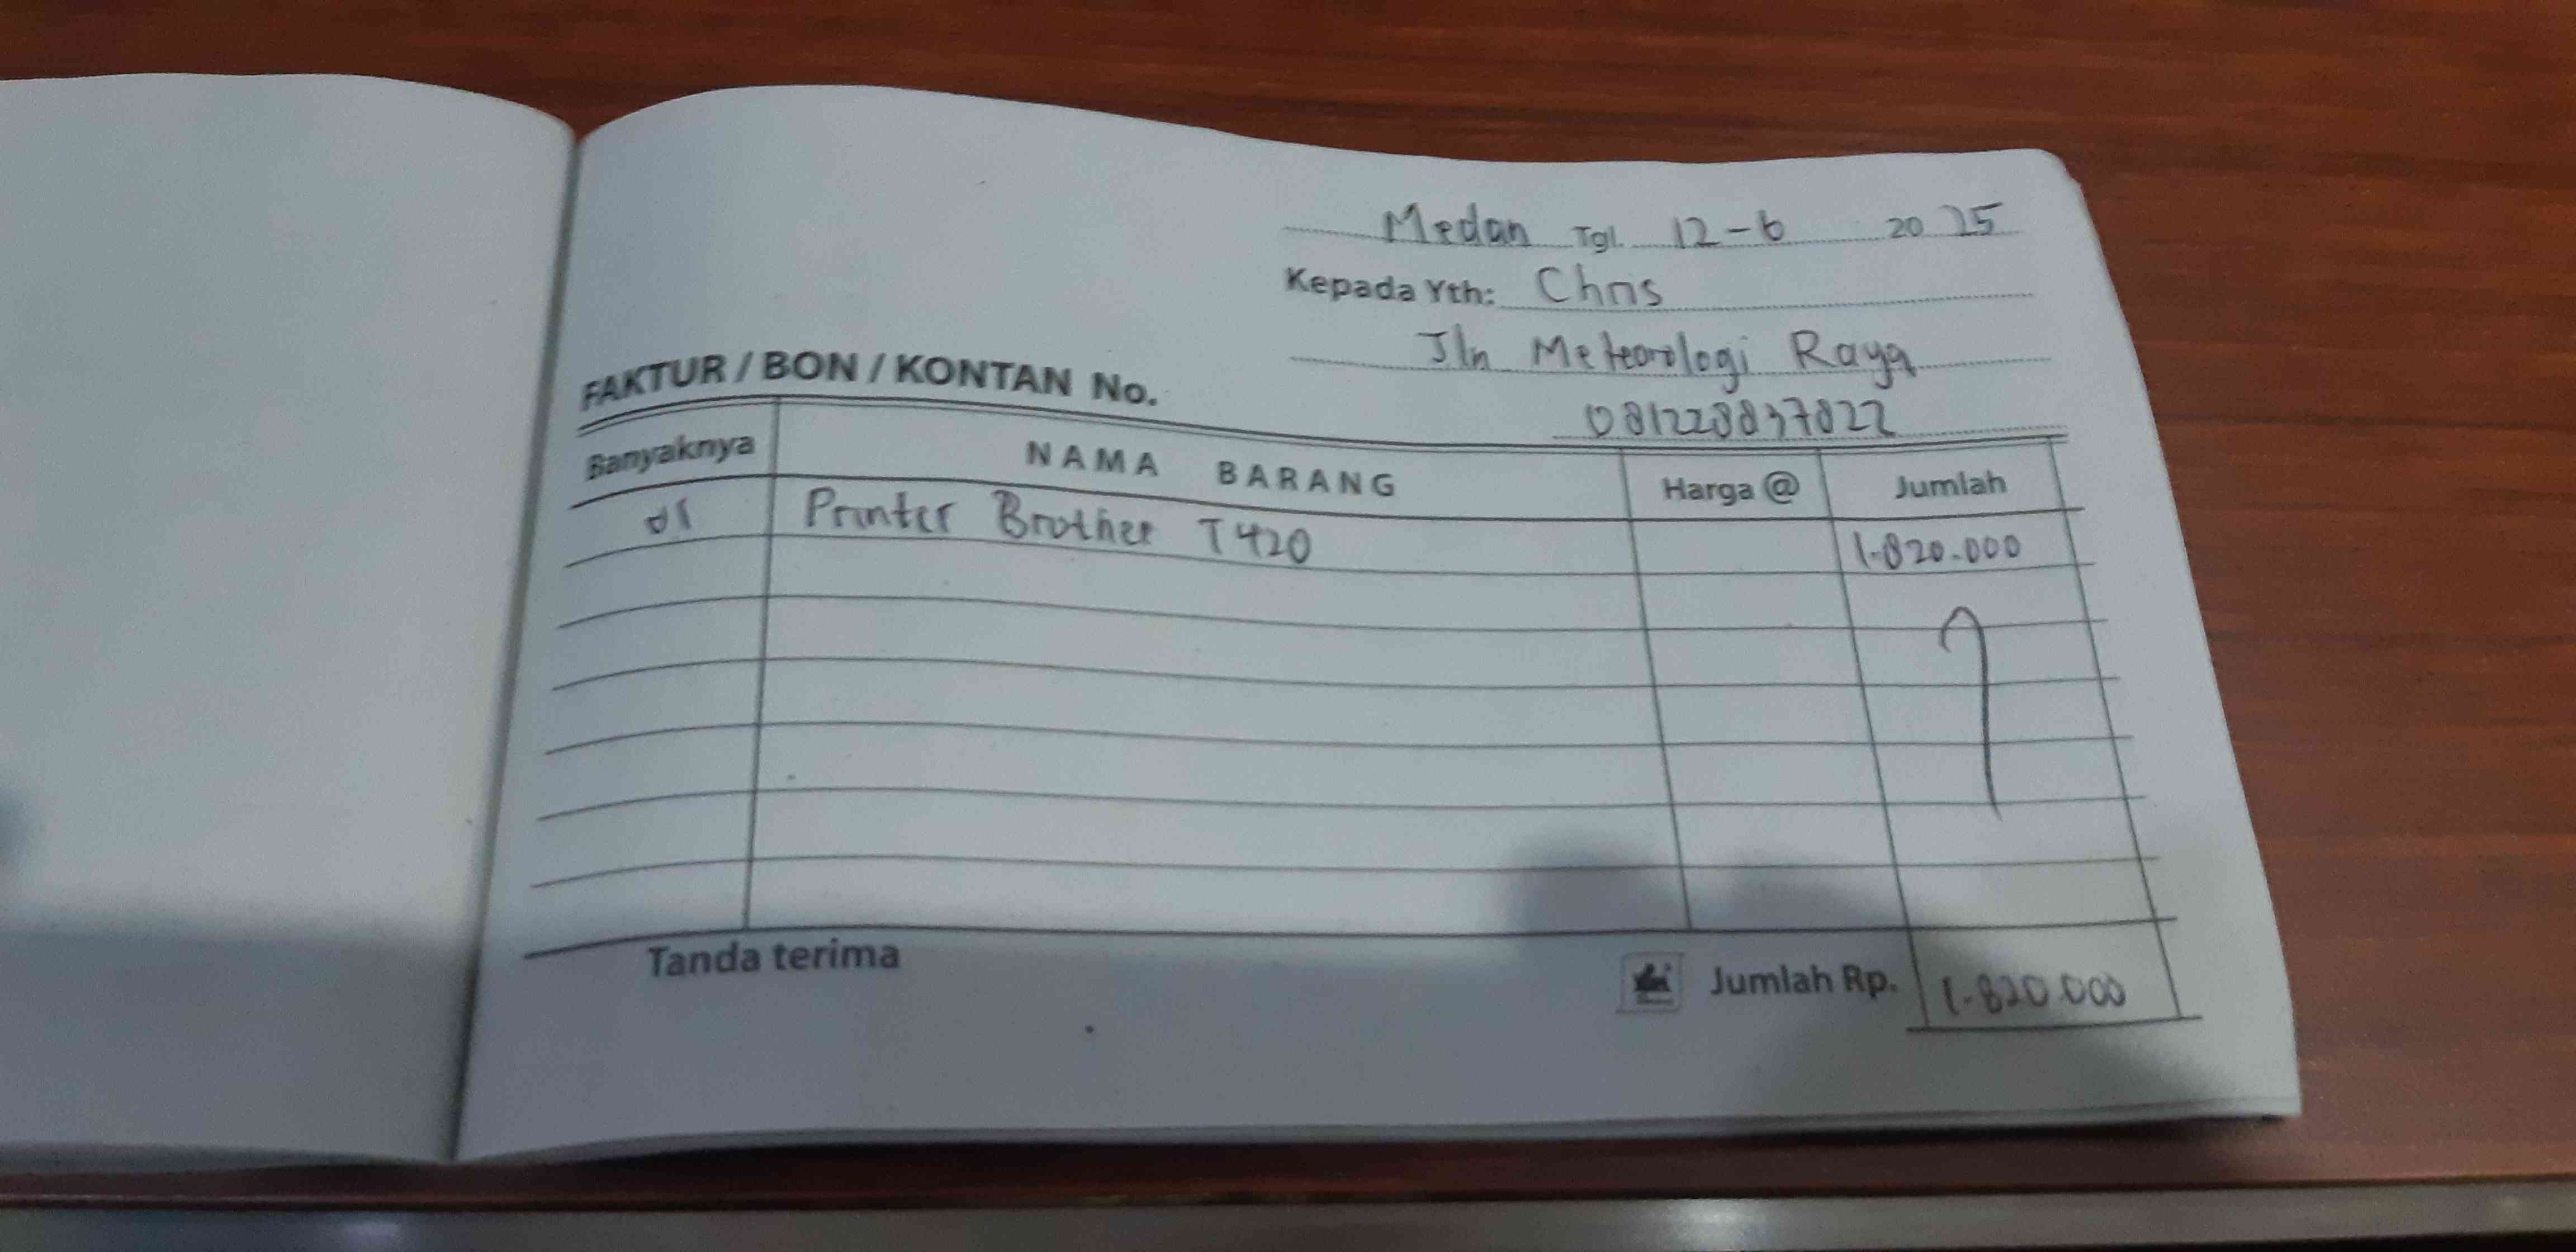 Medan Tgl. 12-6 2025
Kepada Yth: Chris
Jln Meteorologi Raya
081228837822
FAKTUR / BON / KONTAN No.
Banyaknya NAMA BARANG Harga @ Jumlah
01 Printer Brother T420 1.820.000
Tanda terima Jumlah Rp. 1.820.000